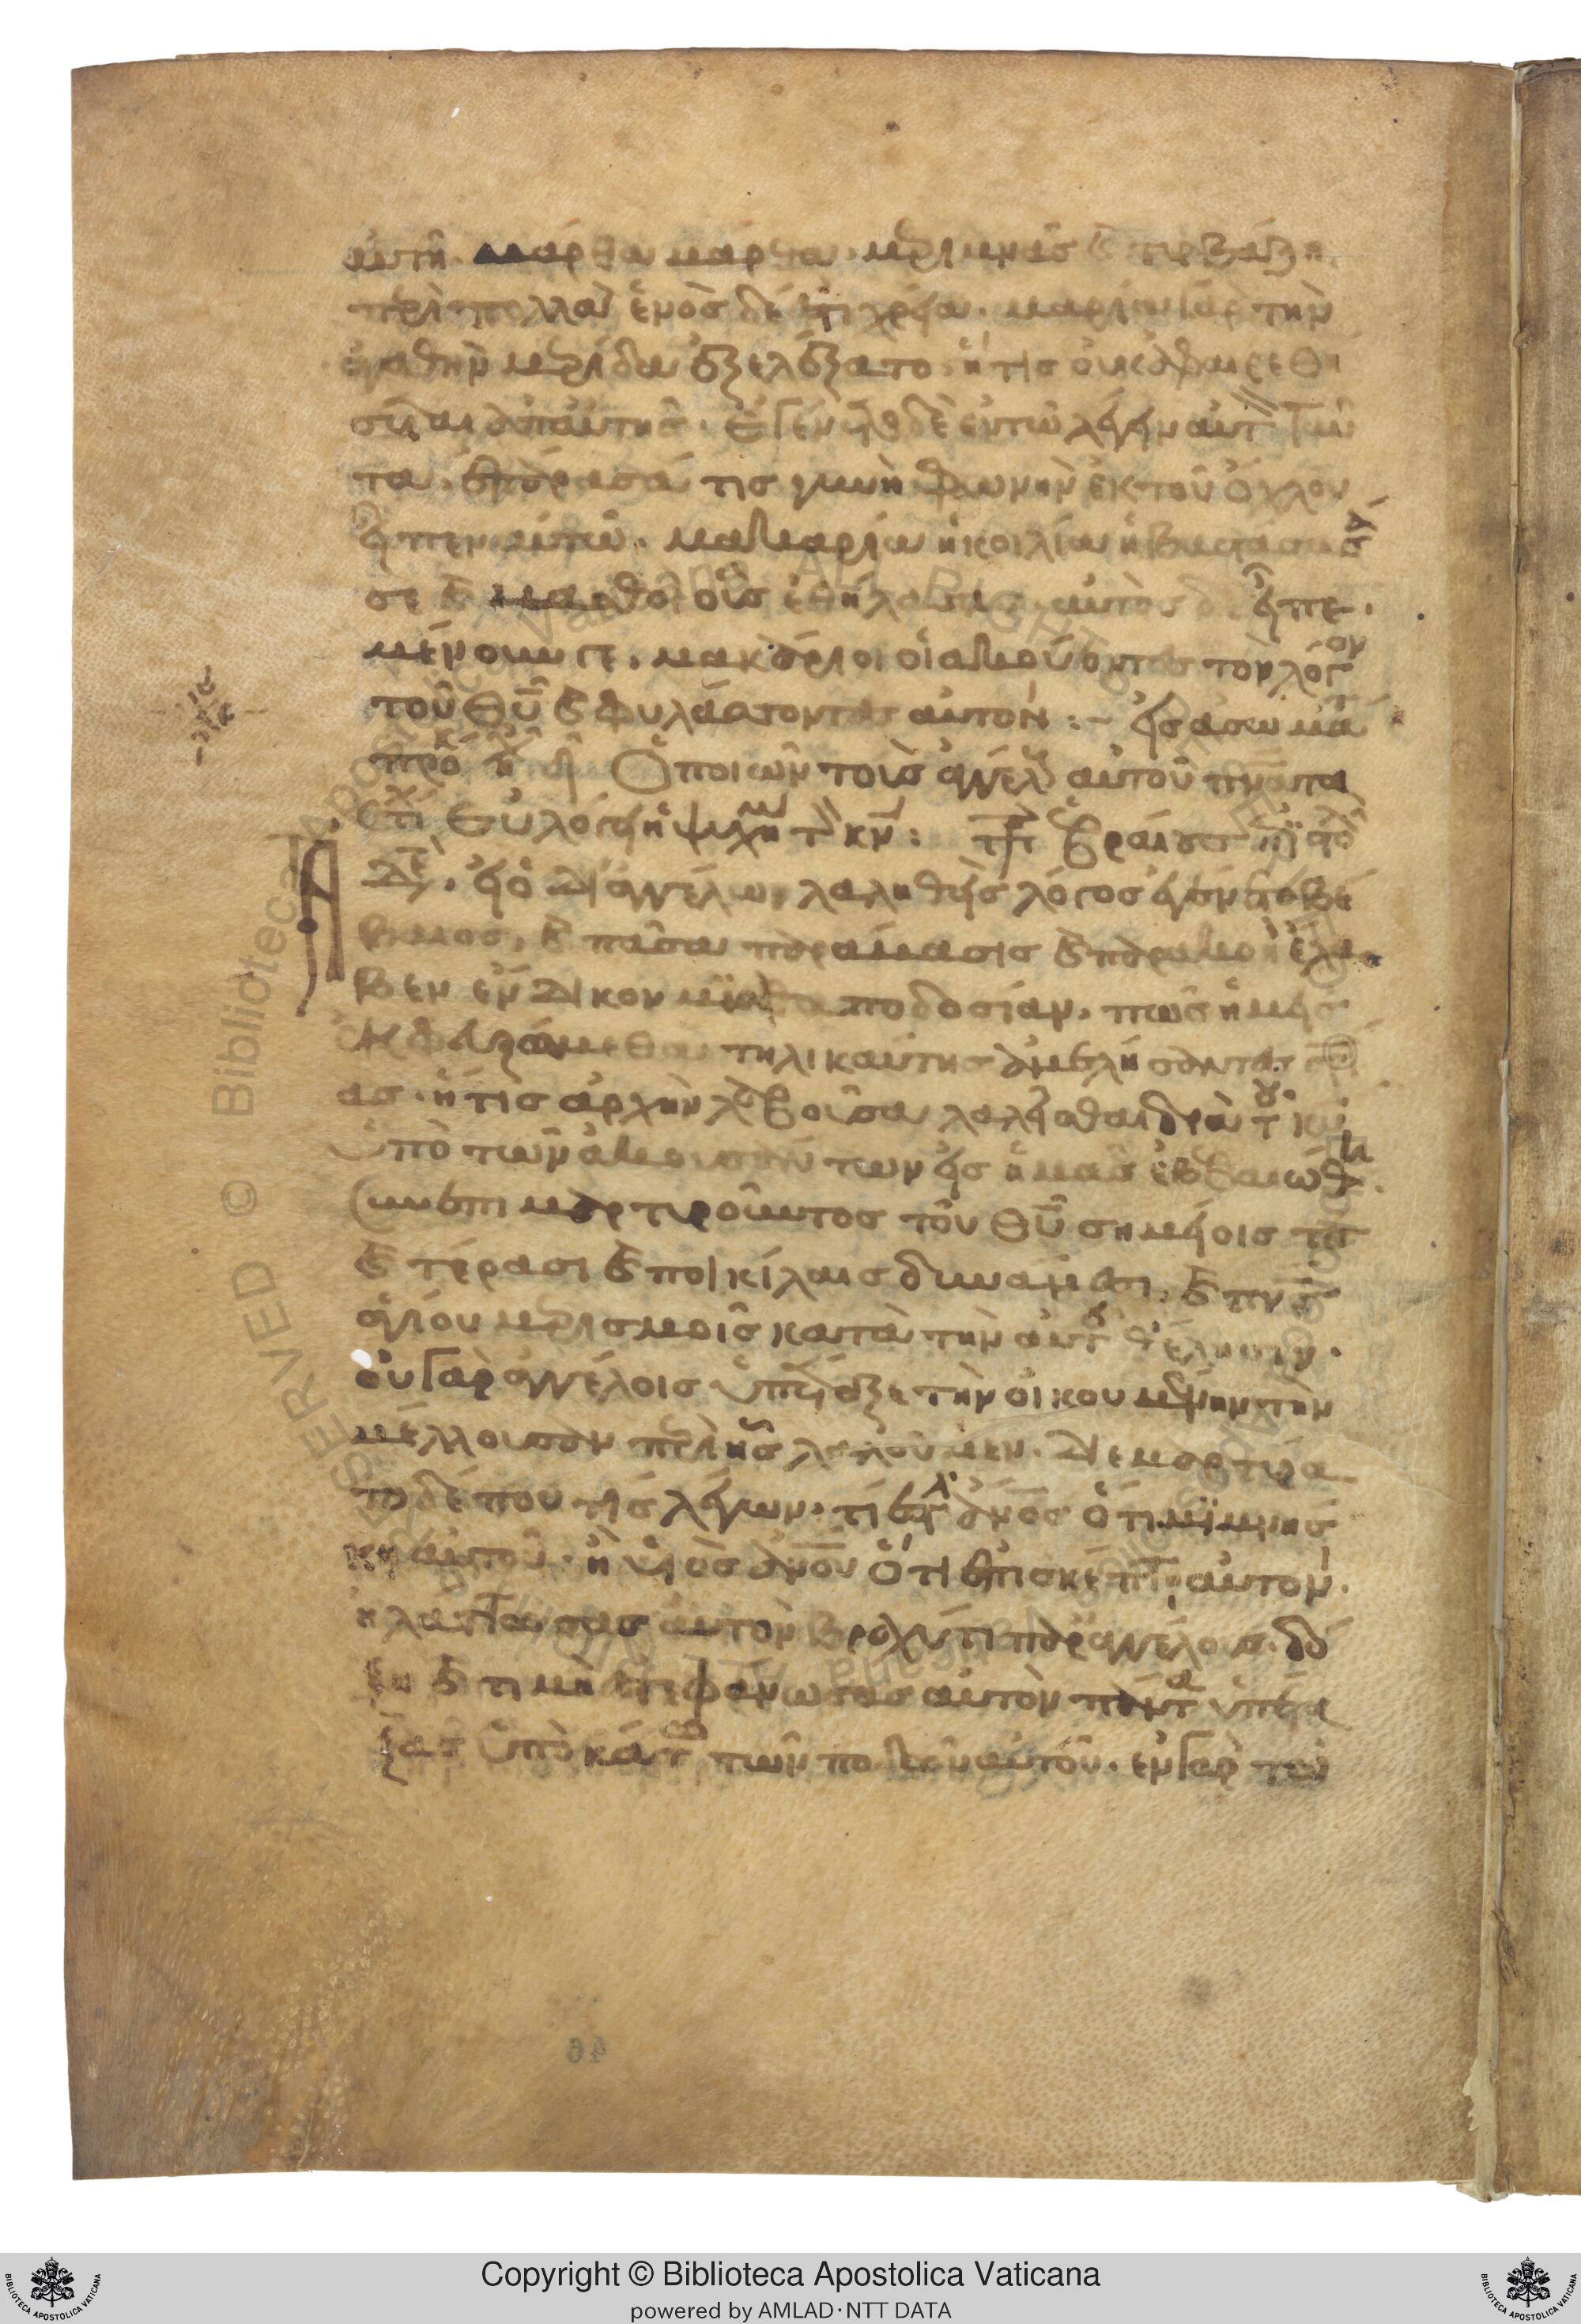 αὐτῆ. μάρθα μάρθα. μεριμνᾶς καὶ τυρβάζη
περὶ πολλὰ ἑνὸς δέ ἐστι χρεία. μαρία γὰρ τὴν
ἀγαθὴν μερίδα ἐξελέξατο. ἥτις οὐκ ἀφαιρεθή
σεται ἀπ' αὐτῆς. ἐγένετο δὲ ἐν τῷ λέγειν αὐτ ταῦ
τα. ἐπάρασά τις γυνὴ φωνὴν ἐκ τοῦ ὄχλου
εἶπεν αὐτῶ. μακαρία ἡ κοιλία ἡ βαστάσασά
σε καὶ μασθοὶ οὓς ἐθήλασας. αὐτὸς δὲ εἶπε.
μενοῦνγε. μακάριοι οἱ ἀκούοντες τὸν λόγον
τοῦ θῦ καὶ φυλάσσοντες αὐτόν :~ εἰς ἀσωμά
Ὁ ποιῶν τοὺς ἀγγέλ αὐτοῦ πνάτα
στί Εὐλόγει ἡ ψυχή τ κν : πρ Ἑβραίους
Ἀδε. εἰ ὁ δι' ἀγγέλων λαληθεὶς λόγος ἐγένετο βέ
βαιος. καὶ πᾶσα παράβασις καὶ παρακοὴ ἔλα
βεν ἔνδικον μισθαποδοσίαν. πῶς ἡμεῖς
ἐκφευξόμεθα τηλικαύτης ἀμελήσαντες σρι
ας. ἥτις ἀρχὴν λαβοῦσα λαλεῖσθαι διὰ τοῦ κυ
ὑπὸ τῶν ἀκουσάντων εἰς ἡμᾶς ἐβεβαιώθη.
συνεπιμαρτυροῦντος τοῦ θῦ σημείοις τε
καὶ τέρασι καὶ ποικίλαις δυνάμεσι. καὶ πνς
ἁγίου μερισμοῖς κατὰ τὴν αὐτοῦ θέλησιν.
οὐ γὰρ ἀγγέλοις ὑπέταξε τὴν οἰκουμένην τὴν
μέλλουσαν περὶ ἧς λαλοῦμεν. διεμαρτύρα
το δέ πού τις λέγων. τί ἐστιν ἄνος ὅτι μιμνήσ
κη αὐτοῦ. ἢ υἱὸς ἀνου ὅτι ἐπισκέπτη αὐτόν.
ἠλάττωσας αὐτὸν βραχύ τι παρ' ἀγγέλους. δό
ξη καὶ τιμῆ ἐστεφάνωσας αὐτὸν πάντα ὑπέτα
ξας ὑποκάτω τῶν ποδῶν αὐτοῦ. ἐν γὰρ τῶ
46
Copyright © Biblioteca Apostolica Vaticana
powered by AMLAD·NTT DATA